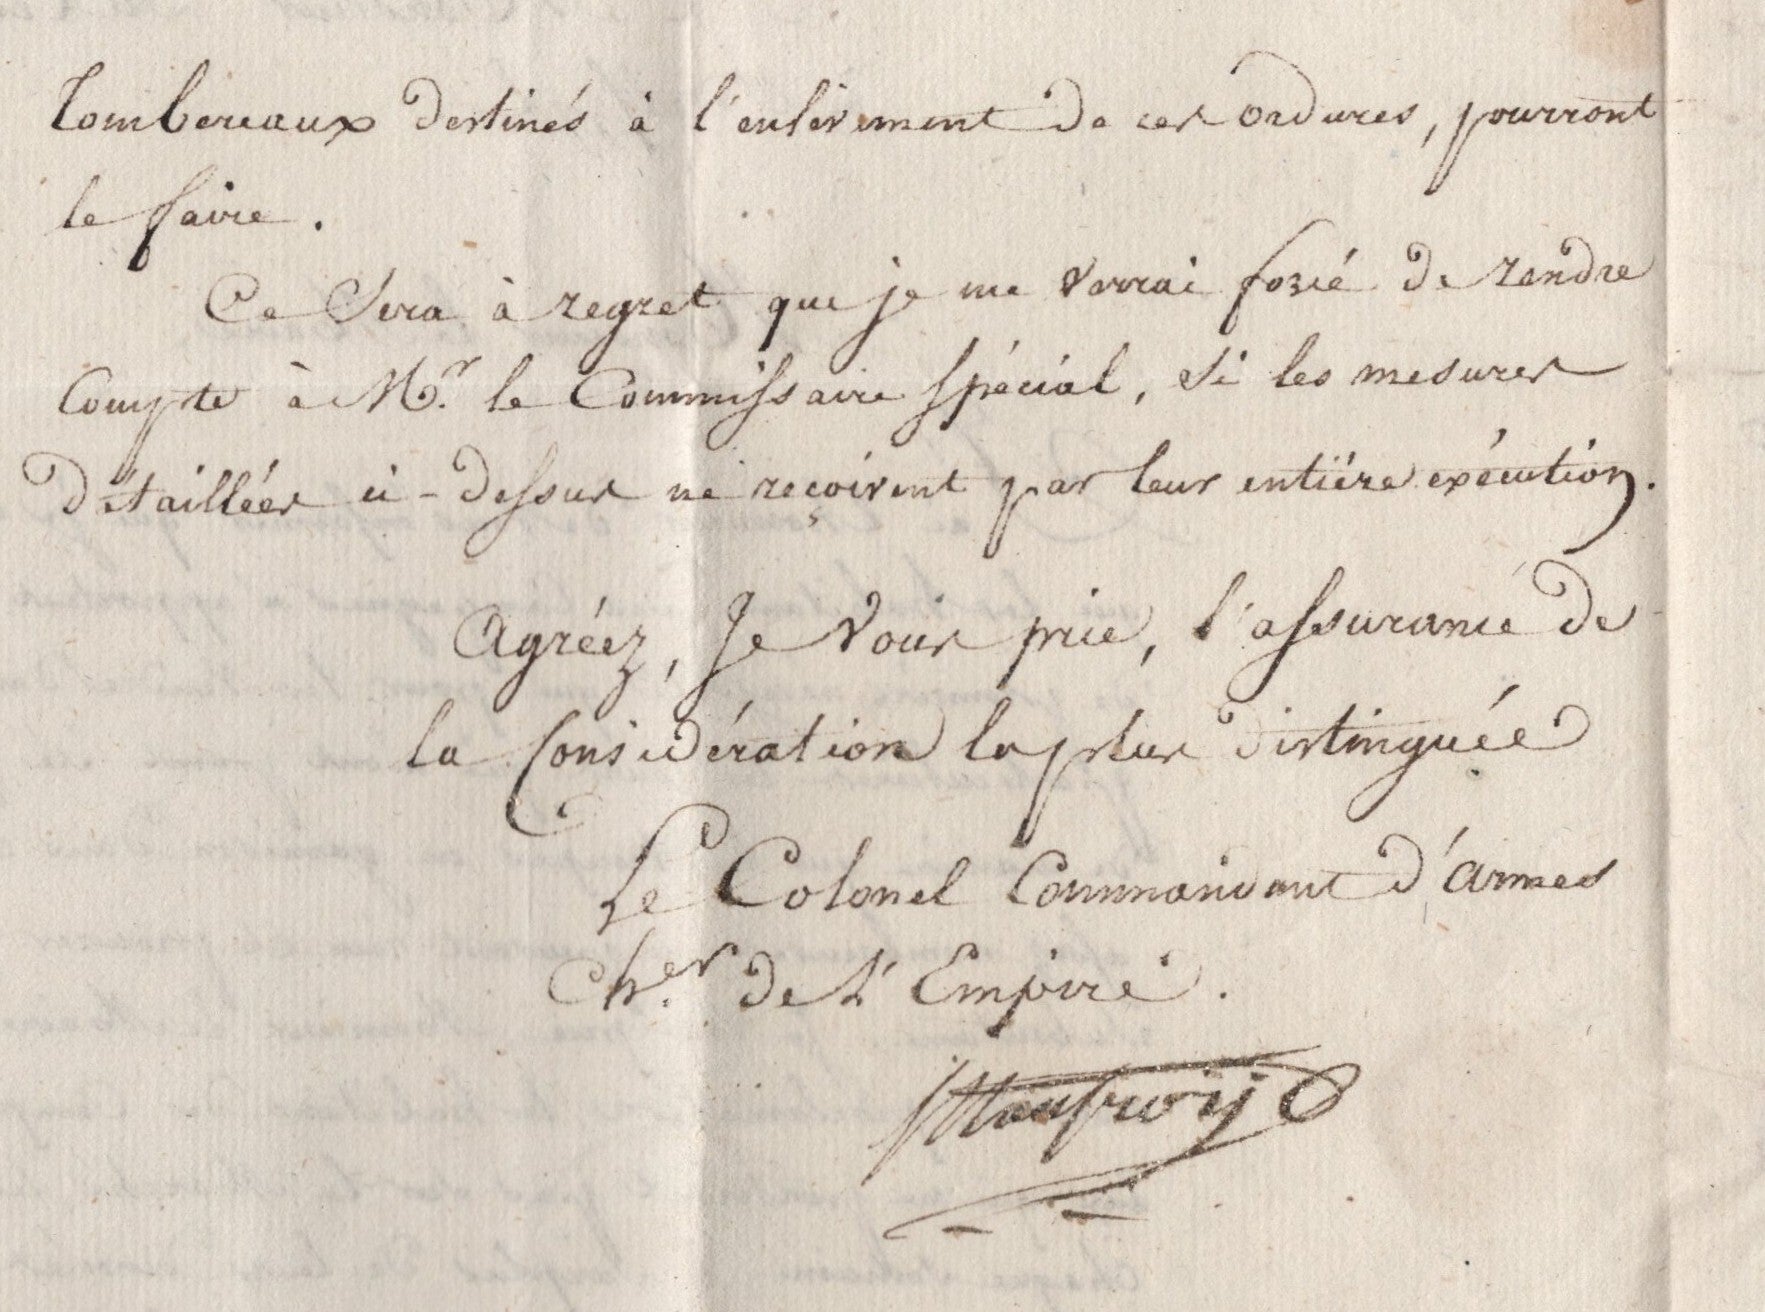 Tombereaux destinés à l'enlèvement de ces ordures, pourront
le faire.
Ce Sera à regret que je me verrai forcé de rendre
Compte à Mr. le Commissaire Spécial, si les mesures
détaillées ci-dessus ne reçoivent pas leur entière exécution.
Agréez, Je Vous prie, l'assurance de
la Considération la plus distinguée
Le Colonel Commandant d'armes
Cher. de L'Empire.